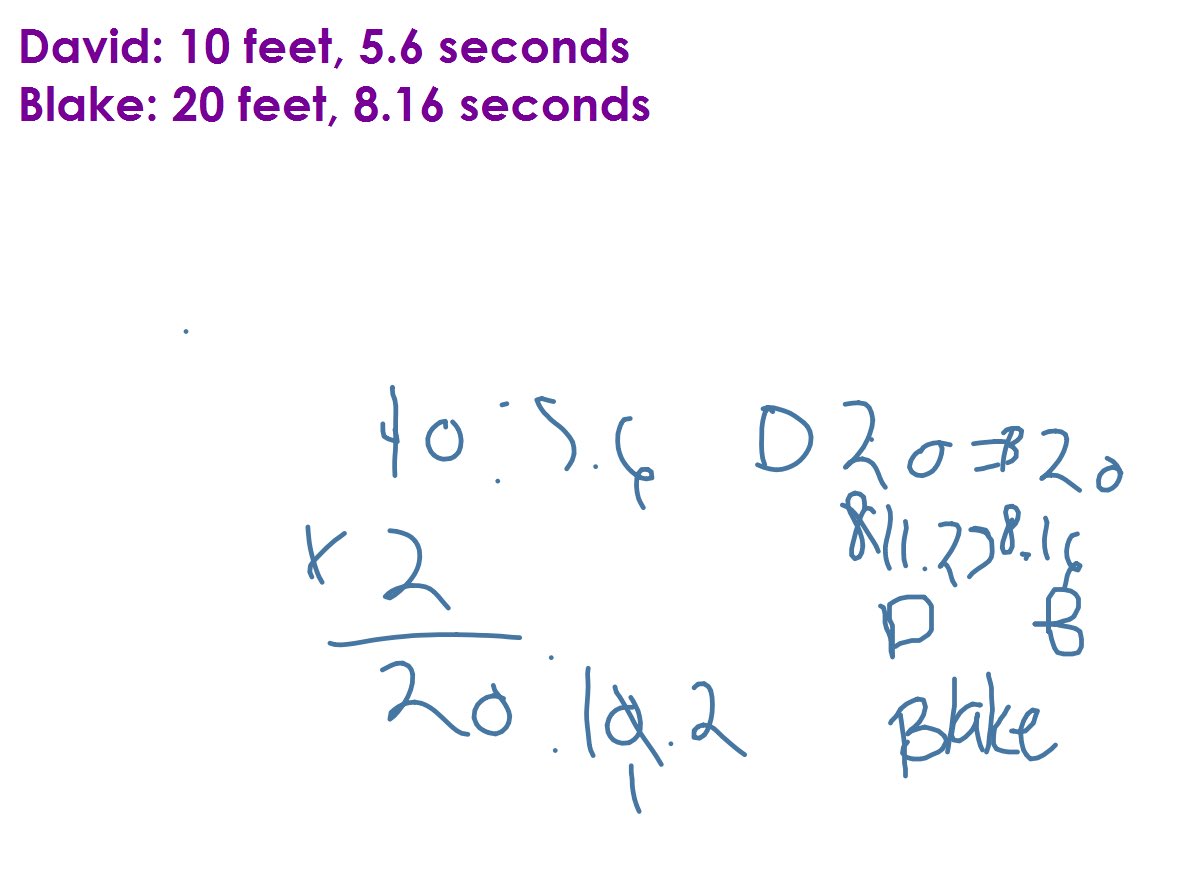 David: 10 feet, 5.6 seconds
Blake: 20 feet, 8.16 seconds
10:5.6
D 20 = B 20
x 2
11.2 > 8.16
D B
20:11.2
Blake